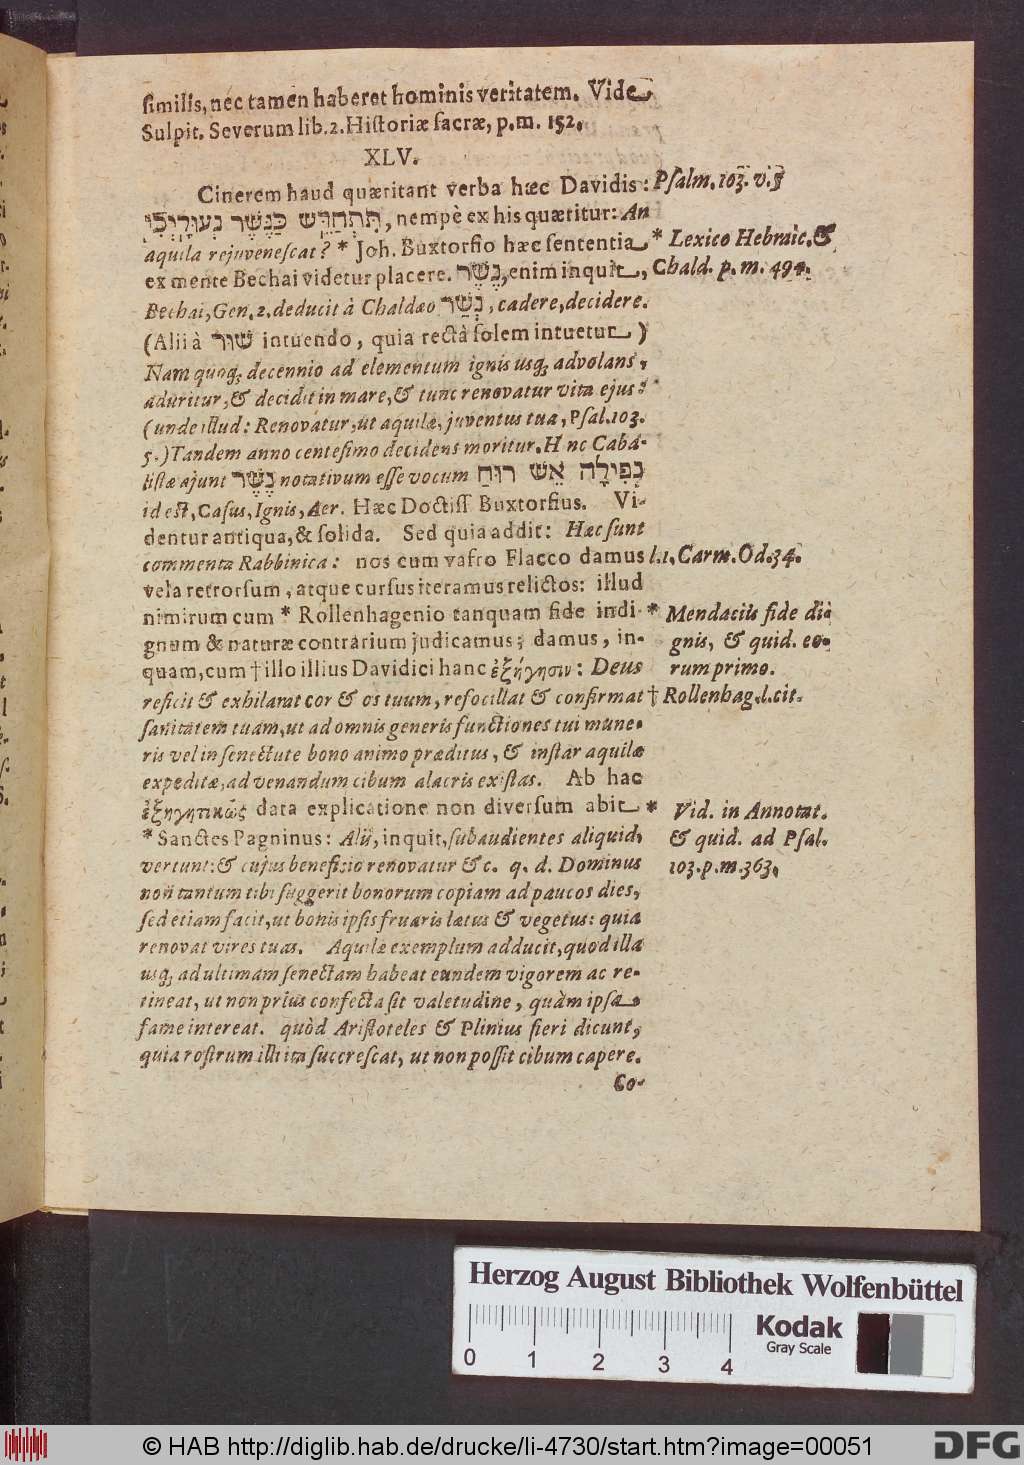 similis, nec tamen haberet hominis veritatem. Vide
Sulpit. Severum lib. 2. Historiæ sacræ, p. m. 152.
XLV.
Cinerem haud quæritant verba hæc Davidis: Psalm. 103. v. 5
תִּתְחַדֵּשׁ כַּנֶּשֶׁר נְעוּרָיְכִי, nempè ex his quæritur: An
aquila rejuvenescat? * Joh. Buxtorfio hæc sententia * Lexico Hebraic. &
ex mente Bechai videtur placere. נֶשֶׁר, enim inquit, Chald. p. m. 494.
Bechai, Gen. 2. deducit à Chaldæo נְשַׁר, cadere, decidere.
(Alii à שׁוּר intuendo, quia rectà solem intuetur)
Nam quoq; decennio ad elementum ignis usq; advolans,
aduritur, & decidit in mare, & tunc renovatur vita ejus:
(unde illud: Renovatur, ut aquilæ, juventus tua, Psal. 103.
5.) Tandem anno centesimo decidens moritur. H nc Caba-
listæ ajunt נֶשֶׁר notativum esse vocum נְפִילָה אֵשׁ רוּחַ
id est, Casus, Ignis, Aer. Hæc Doctiss Buxtorfius. Vi-
dentur antiqua, & solida. Sed quia addit: Hæc sunt
commenta Rabbinica: nos cum vafro Flacco damus l. 1. Carm. Od. 34.
vela retrorsum, atque cursus iteramus relictos: illud
nimirum cum * Rollenhagenio tanquam fide indi- * Mendaciis fide di-
gnum & naturæ contrarium judicamus; damus, in- gnis, & quid. eo-
quam, cum † illo illius Davidici hanc ἐξήγησιν: Deus rum primo.
reficit & exhilarat cor & os tuum, refocillat & confirmat † Rollenhag. l. cit.
sanitatem tuam, ut ad omnis generis functiones tui mune-
ris vel in senectute bono animo præditus, & instar aquilæ
expeditæ, ad venandum cibum alacris existas. Ab hac
ἐξηγητικῶς data explicatione non diversum abit * Vid. in Annotat.
* Sanctes Pagninus: Alii, inquit, subaudientes aliquid, & quid. ad Psal.
vertunt: & cujus beneficio renovatur & c. q. d. Dominus 103. p. m. 363.
non tantum tibi suggerit bonorum copiam ad paucos dies,
sed etiam facit, ut bonis ipsis fruaris lætus & vegetus: quia
renovat vires tuas. Aquilæ exemplum adducit, quod illa
usq; ad ultimam senectam habeat eundem vigorem ac re-
tineat, ut non prius confecta sit valetudine, quàm ipsa
fame intereat. quòd Aristoteles & Plinius fieri dicunt,
quia rostrum illi ita succrescat, ut non possit cibum capere.
Co-
Herzog August Bibliothek Wolfenbüttel
0 1 2 3 4
Kodak
Gray Scale
© HAB http://diglib.hab.de/drucke/li-4730/start.htm?image=00051
DFG